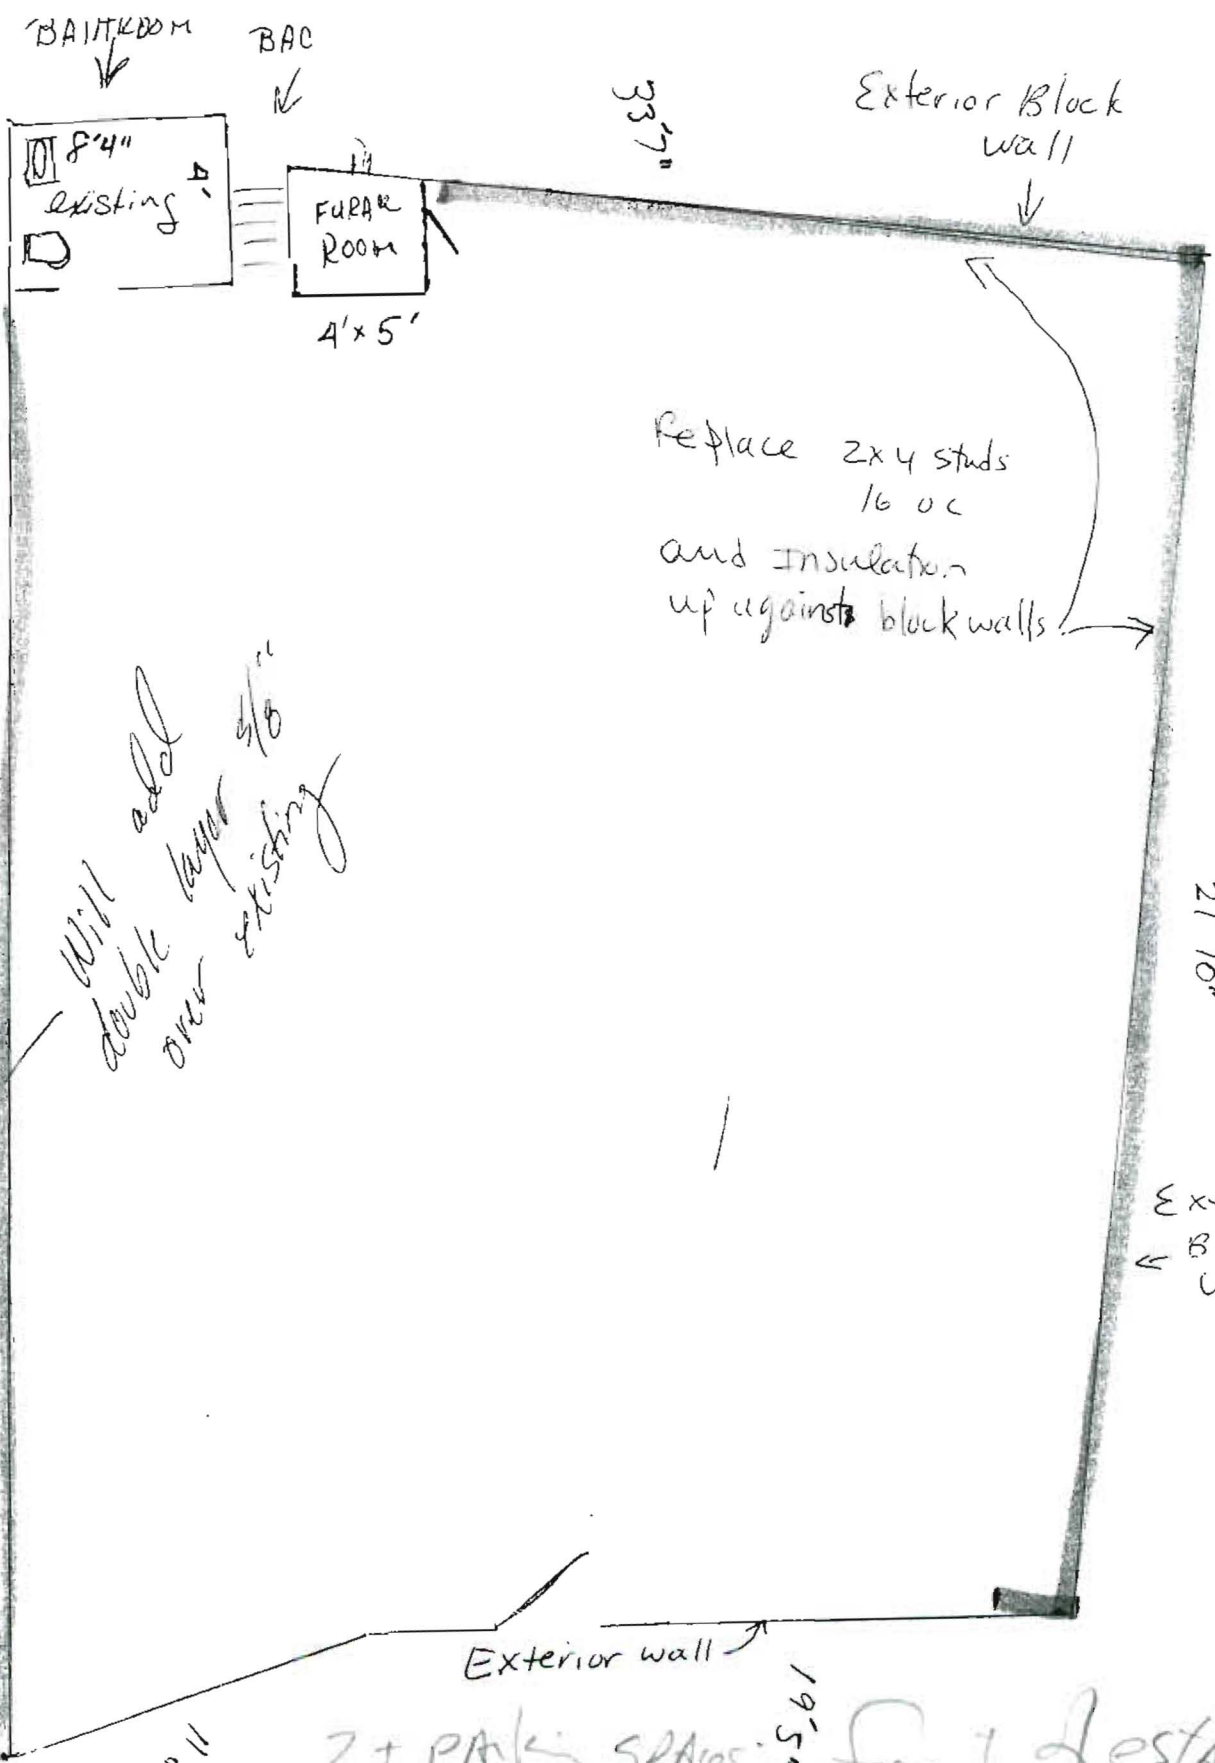 BATHROOM
BAC
33'7"
Exterior Block
wall
8'4"
4'
existing
ROOM
4'x5'
Replace 2x4 studs
16 oc
and Insulation
up against block walls
Will add
double layer 5/8"
over existing
Exterior wall
19'5"
2+ PArking SPAces